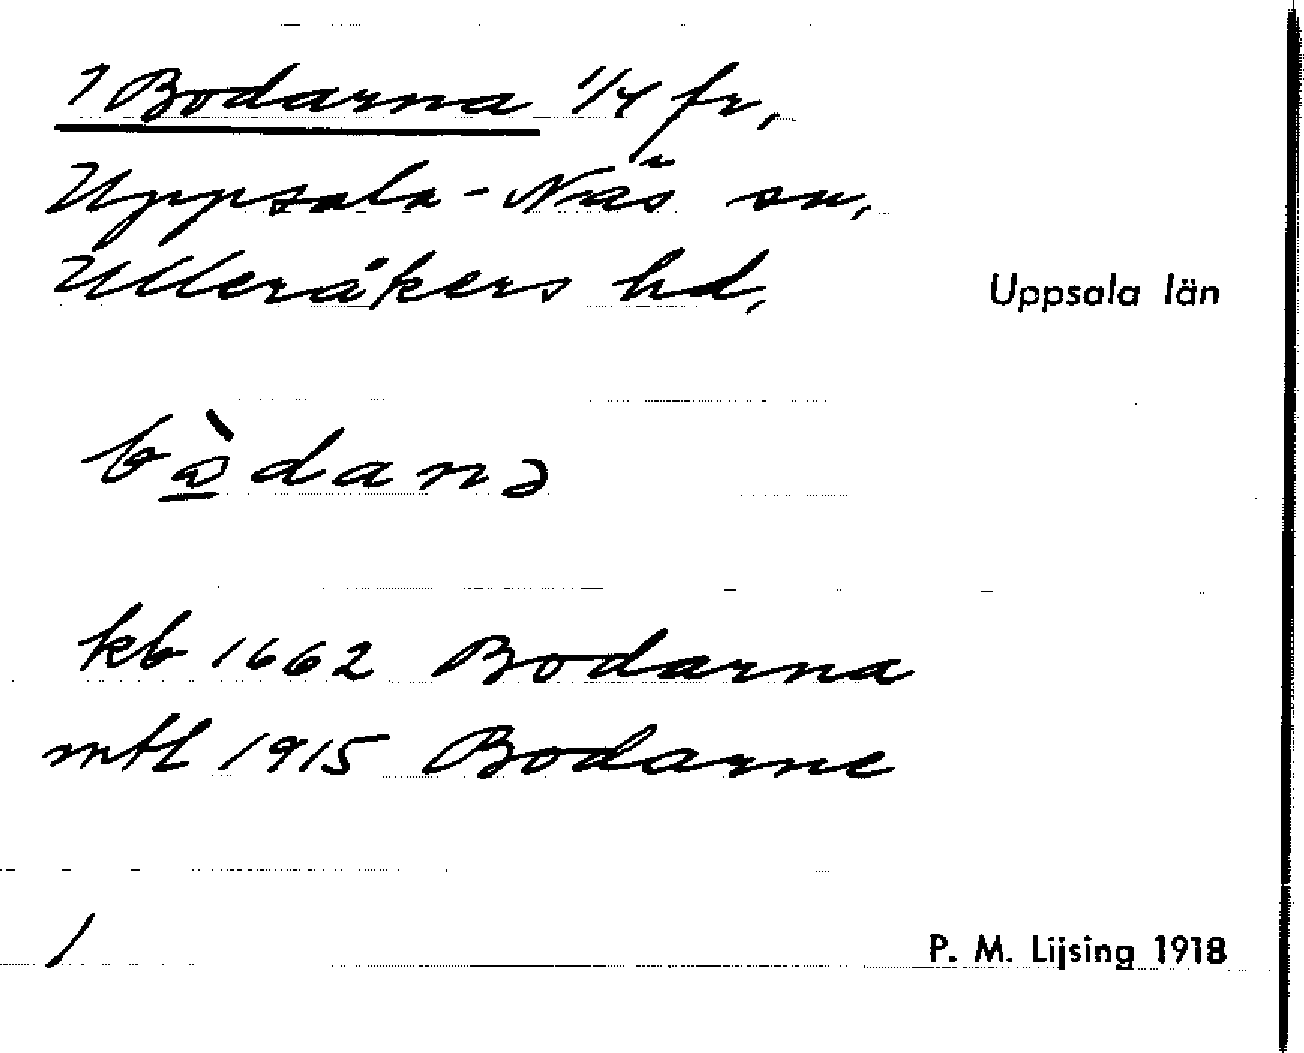 1 Bodarna 1/4 fr,
Uppsala-Näs sn,
Ulleråkers hd,
Uppsala län
bὼdanə
kb 1662 Bodarna
mtl 1915 Bodarne
1
P. M. Lijsing 1918